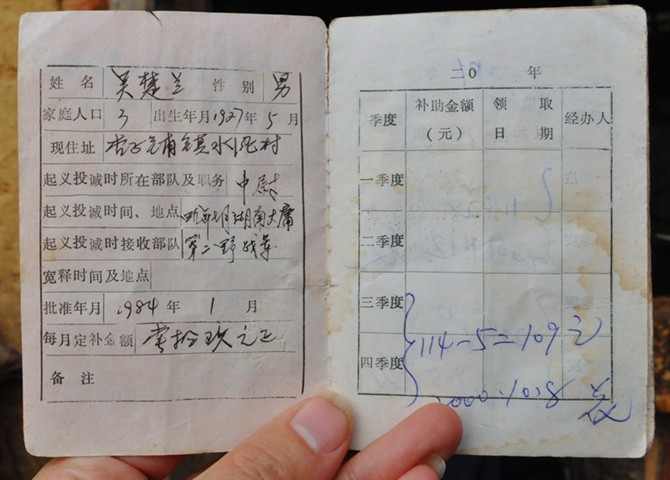 姓名 吴楚兰 性别 男
家庭人口 3 出生年月 1927年5月
现住址 村
起义投诚时所在部队及职务 中尉
起义投诚时间、地点 湖南大庸
起义投诚时接收部队 第二野战军
宽释时间及地点
批准年月 1984年1月
每月定补金额 壹拾玖元正
备注
二0 年
季度 补助金额(元) 领取日期 经办人
一季度
二季度
三季度
114-5=109元
四季度
2000.10.8